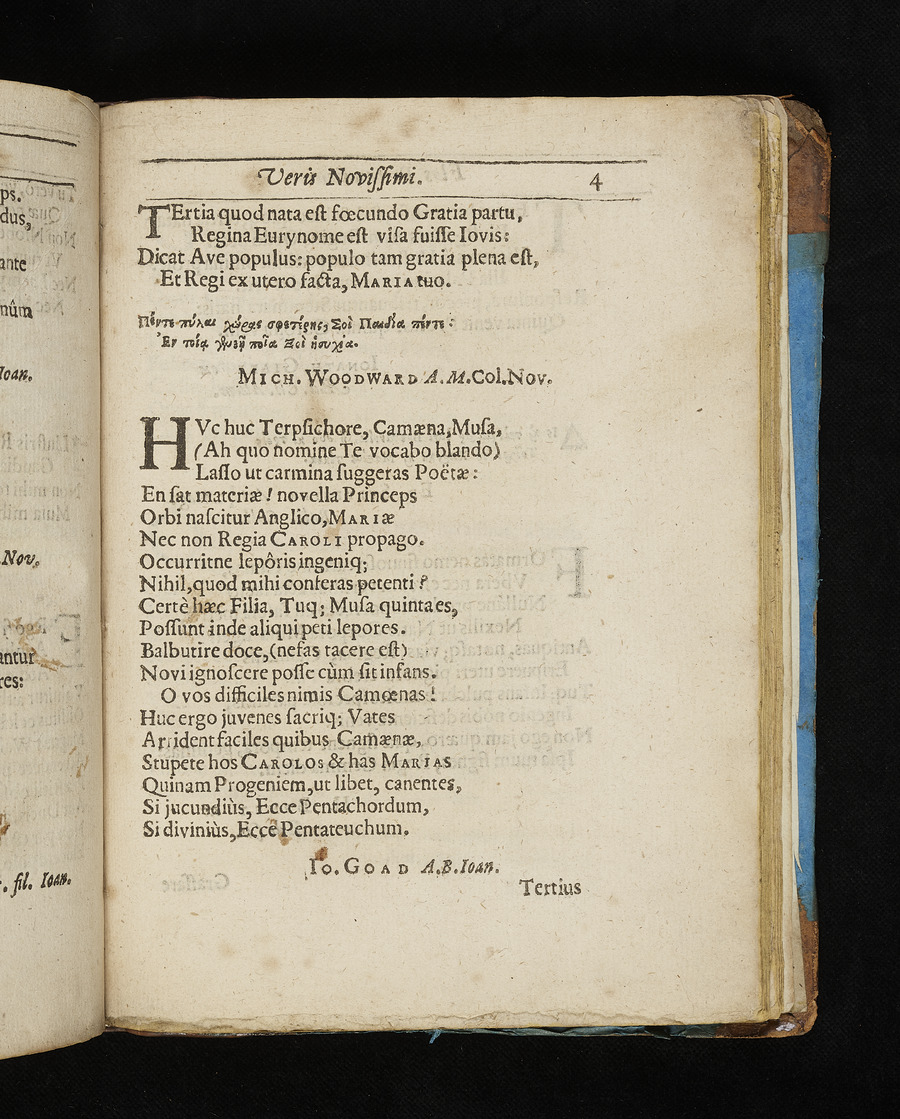 ps.
dus,
ante
nûm
Ioan.
Nov.
antur
res:
fil. Ioan.
Veris Noviſſimi. 4
TErtia quod nata eſt fœcundo Gratia partu,
Regina Eurynome eſt viſa fuiſſe Iovis:
Dicat Ave populus: populo tam gratia plena eſt,
Et Regi ex utero facta, MARIA tuo.
Πέντε πύλαι χώρης σφετέρης, Σοὶ Παιδία πέντε:
Ἐν ποία Σοὶ ἡσυχία.
MICH. WOODWARD A.M. Col. Nov.
HVc huc Terpſichore, Camæna, Muſa,
(Ah quo nomine Te vocabo blando)
Laſſo ut carmina ſuggeras Poëtæ:
En ſat materiæ! novella Princeps
Orbi naſcitur Anglico, MARIæ
Nec non Regia CAROLI propago.
Occurritne lepôris ingeniq;
Nihil, quod mihi conferas petenti?
Certè hæc Filia, Tuq; Muſa quinta es,
Poſſunt inde aliqui peti lepores.
Balbutire doce, (nefas tacere eſt)
Novi ignoſcere poſſe cùm ſit infans.
O vos difficiles nimis Camœnas!
Huc ergo juvenes ſacriq; Vates
Arrident faciles quibus Camænæ,
Stupete hos CAROLOS & has MARIAS
Quinam Progeniem, ut libet, canentes,
Si jucundiùs, Ecce Pentachordum,
Si diviniùs, Ecce Pentateuchum.
IO. GOAD A.B. Ioan.
Tertius